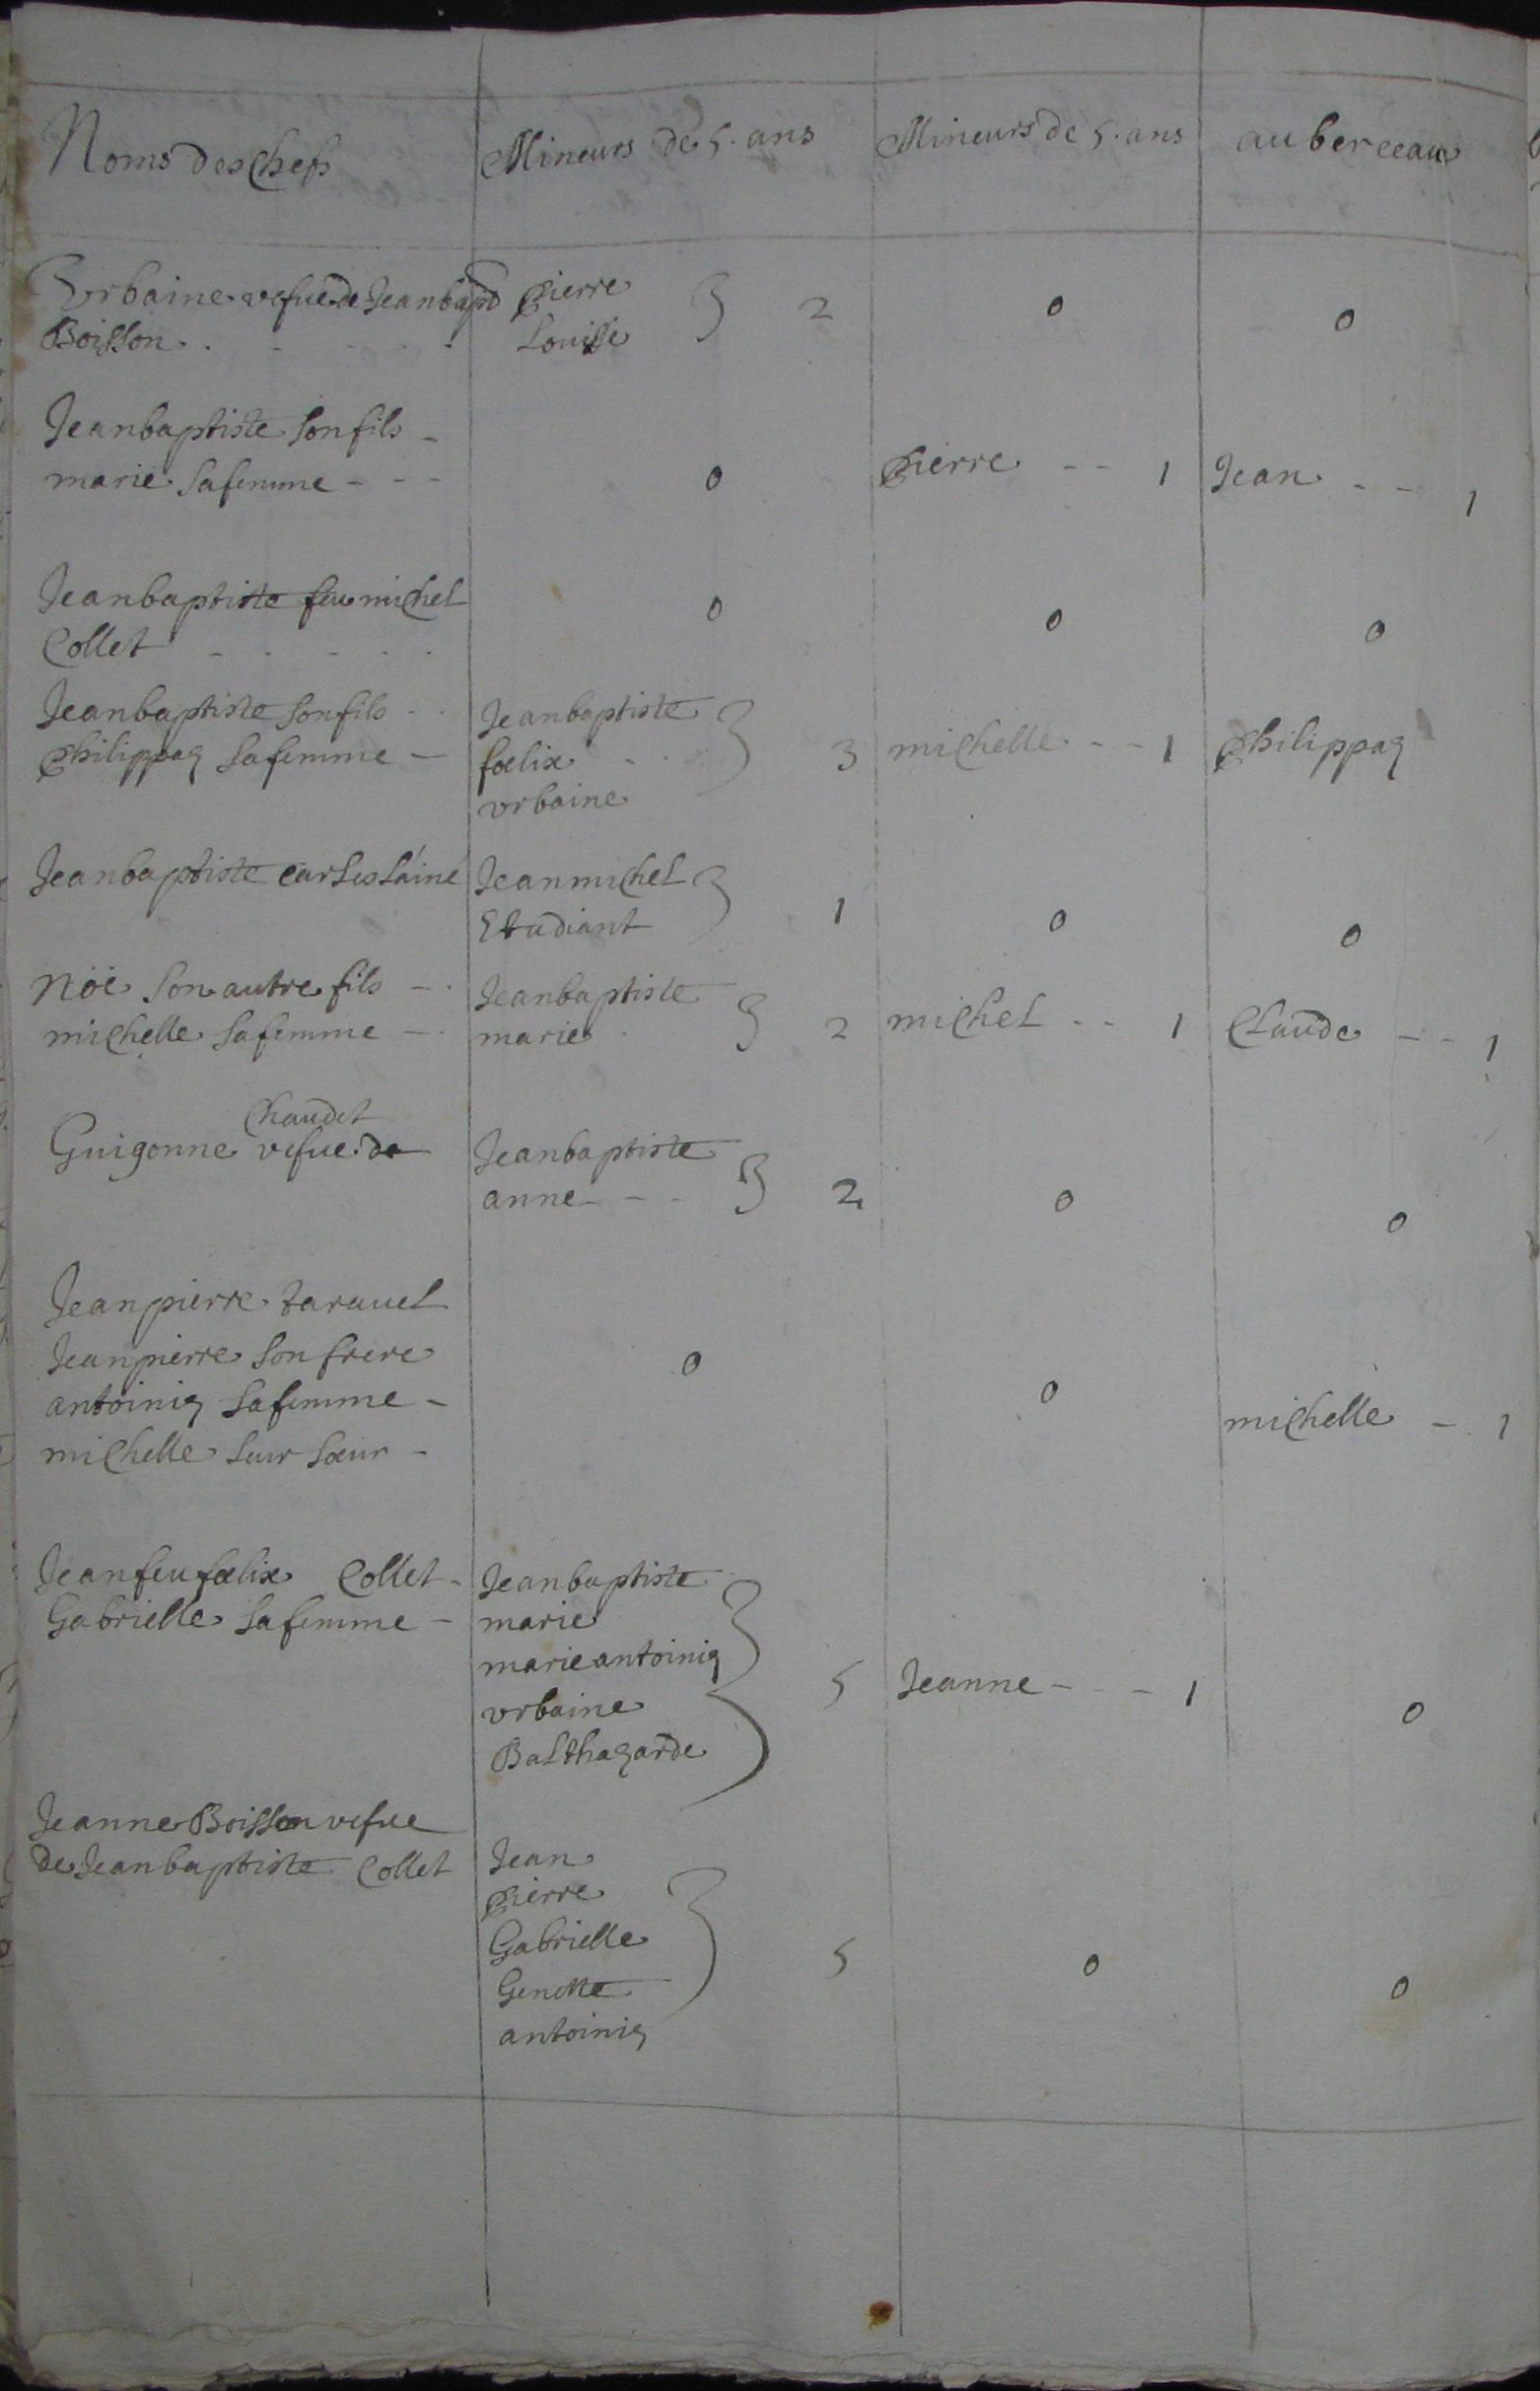 Noms des Chefs | Mineurs de 5. ans | Mineurs de 5. ans | au berceau
Vrbaine vefue de Jeanbapt | Pierre
Boisson . . . . . | Louise } 2 | 0 | 0
Jeanbaptiste son fils -
marie sa femme - - - | 0 | Pierre - - 1 | Jean - - 1
Jeanbaptiste feu michel | 0 | 0 | 0
Collet - . - . .
Jeanbaptiste son fils - . | Jeanbaptiste
Philippaz sa femme - | foelix . . } 3 | michelle - - 1 | Philippaz
vrbaine
Jeanbaptiste Carles L'ainé | Jeanmichel
Etudiant } 1 | 0 | 0
Nöé son autre fils - . | Jeanbaptiste
michelle sa femme - . | marie } 2 | michel - - 1 | Claude - - 1
Chaudet
Guigonne vefue de | Jeanbaptiste
anne - - - } 2 | 0 | 0
Jeanpierre taravel
Jeanpierre son frere | 0
antoinia sa femme - | 0 | michelle - 1
michelle leur soeur -
Jean feu foelix Collet - | Jeanbaptiste
Gabrielle sa femme - | marie
marie antoinia
vrbaine } 5 | Jeanne - - - 1 | 0
Balthazarde
Jeanne Boisson vefue
de Jeanbaptiste Collet | Jean
Pierre
Gabrielle } 5 | 0 | 0
Genette
antoinia